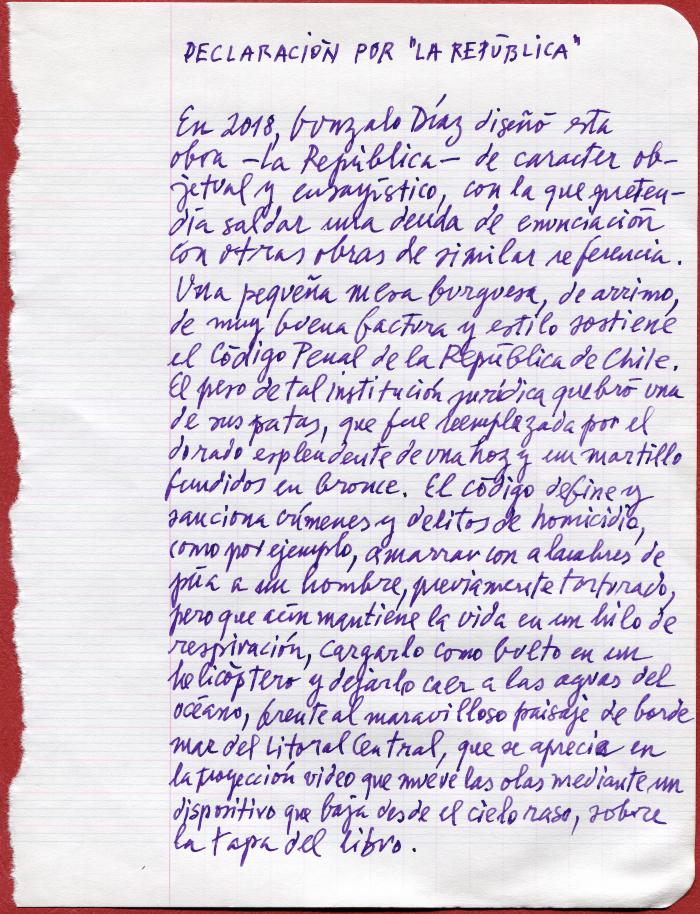 DECLARACIÓN POR "LA REPÚBLICA"
En 2018, Gonzalo Díaz diseñó esta
obra —La República— de caracter ob-
jetual y ensayístico, con la que preten-
día saldar una deuda de enunciación
con otras obras de similar referencia.
Una pequeña mesa burguesa, de arrimo,
de muy buena factura y estilo sostiene
el Código Penal de la República de Chile.
El peso de tal institución jurídica quebró una
de sus patas, que fue reemplazada por el
dorado esplendente de una hoz y un martillo
fundidos en bronce. El código define y
sanciona crímenes y delitos de homicidio,
como por ejemplo, amarrar con alambres de
púa a un hombre, previamente torturado,
pero que aún mantiene la vida en un hilo de
respiración, cargarlo como bulto en un
helicóptero y dejarlo caer a las aguas del
océano, frente al maravilloso paisaje de borde
mar del Litoral Central, que se aprecia en
la proyección video que mueve las olas mediante un
dispositivo que baja desde el cielo raso, sobre
la tapa del libro.